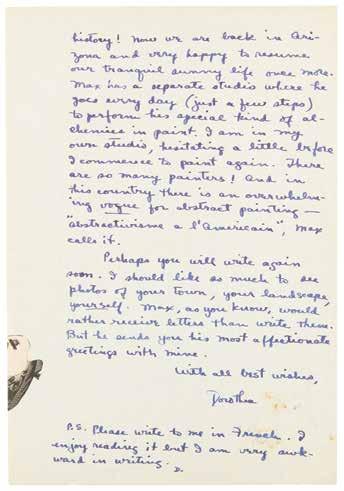 history! Now we are back in Ari-
zona and very happy to resume
our tranquil sunny life once more.
Max has a separate studio where he
goes every day (just a few steps)
to perform his special kind of al-
chemies in paint. I am in my
own studio, hesitating a little before
I commence to paint again. There
are so many painters! And in
this country there is an overwhelm-
ing vogue for abstract painting —
"abstractivisme a l'Americain", Max
calls it.
Perhaps you will write again
soon. I should like so much to see
photos of your town, your landscape,
yourself. Max, as you know, would
rather receive letters than write them.
But he sends you his most affectionate
greetings with mine.
With all best wishes,
Dorothea
P.S. Please write to me in French. I
enjoy reading it but I am very awk-
ward in writing. D.